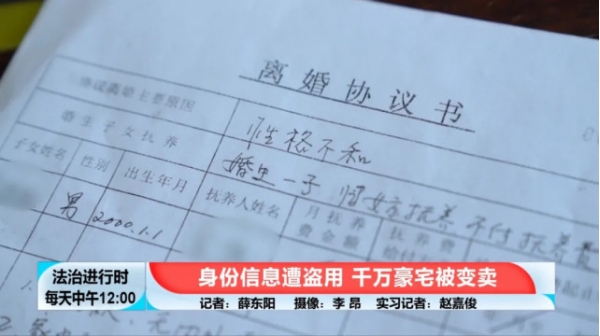 离婚协议书
协议离婚主要原因
性格不和
婚生子女抚养
婚生一子 归女方抚养 不付抚养费
子女姓名
性别
出生年月
抚养人姓名
月抚养
费金额
抚养
男
2000.1.1
法治进行时
每天中午12:00
身份信息遭盗用 千万豪宅被变卖
记者：薛东阳 摄像：李昂 实习记者：赵嘉俊